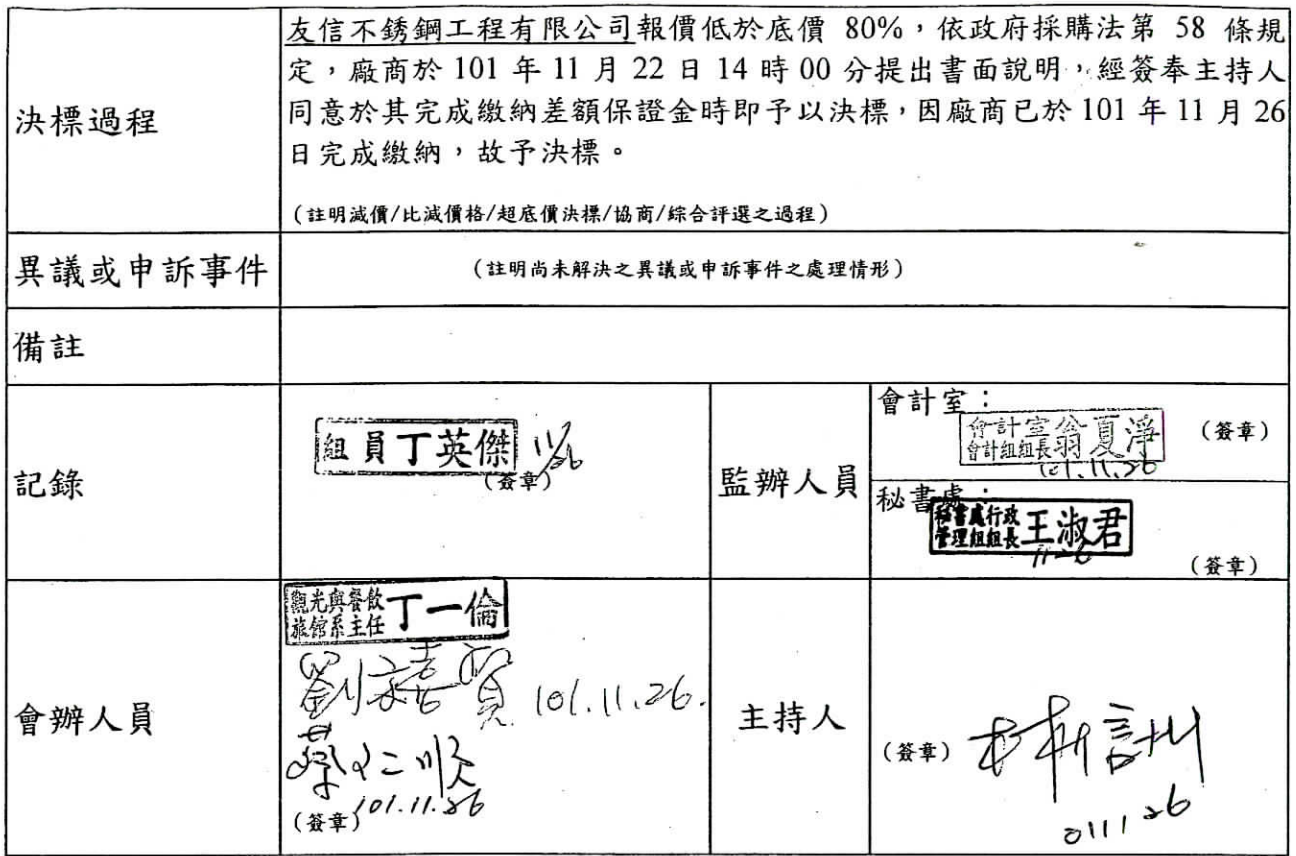 決標過程
友信不銹鋼工程有限公司報價低於底價 80%，依政府採購法第 58 條規
定，廠商於 101 年 11 月 22 日 14 時 00 分提出書面說明，經簽奉主持人
同意於其完成繳納差額保證金時即予以決標，因廠商已於 101 年 11 月 26
日完成繳納，故予決標。
（註明減價/比減價格/超底價決標/協商/綜合評選之過程）
異議或申訴事件
（註明尚未解決之異議或申訴事件之處理情形）
備註
記錄
組員丁英傑 11/26
（簽章）
監辦人員
會計室：
會計室
會計組組長 翁夏淨
（簽章）
101.11.26
秘書處：
秘書處行政
管理組組長 王淑君
11-26
（簽章）
會辦人員
觀光與餐飲
旅館系主任 丁一倫
101.11.26.
（簽章） 101.11.26
主持人
（簽章）